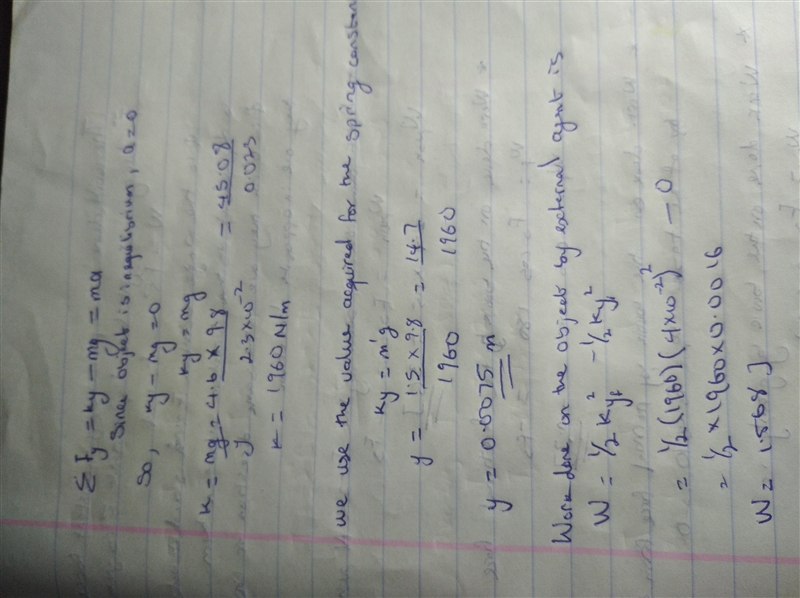 ΣFy = ky - mg = ma
Since object is in equilibrium, a=0
So, ky - mg = 0
ky = mg
k = mg/y = 4.6 x 9.8 / 2.3x10⁻² = 45.08 / 0.023
k = 1960 N/m
we use the value acquired for the spring constan
ky = mg
y = 1.5 x 9.8 / 1960 = 14.7 / 1960
y = 0.0075 m
Work done on the object by external agent is
W = ½ky² - ½ky²
= ½(1960)(4x10⁻²)² - 0
= ½ x 1960 x 0.0016
W = 1.568 J